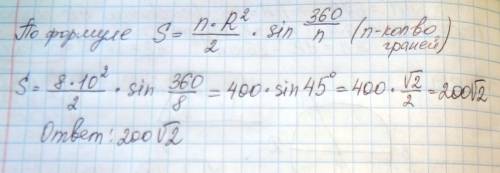 По формуле S = n·R²/2 · sin 360/n (n-кол-во граней)
S = 8·10²/2 · sin 360/8 = 400·sin 45° = 400·√2/2 = 200√2
Ответ: 200√2